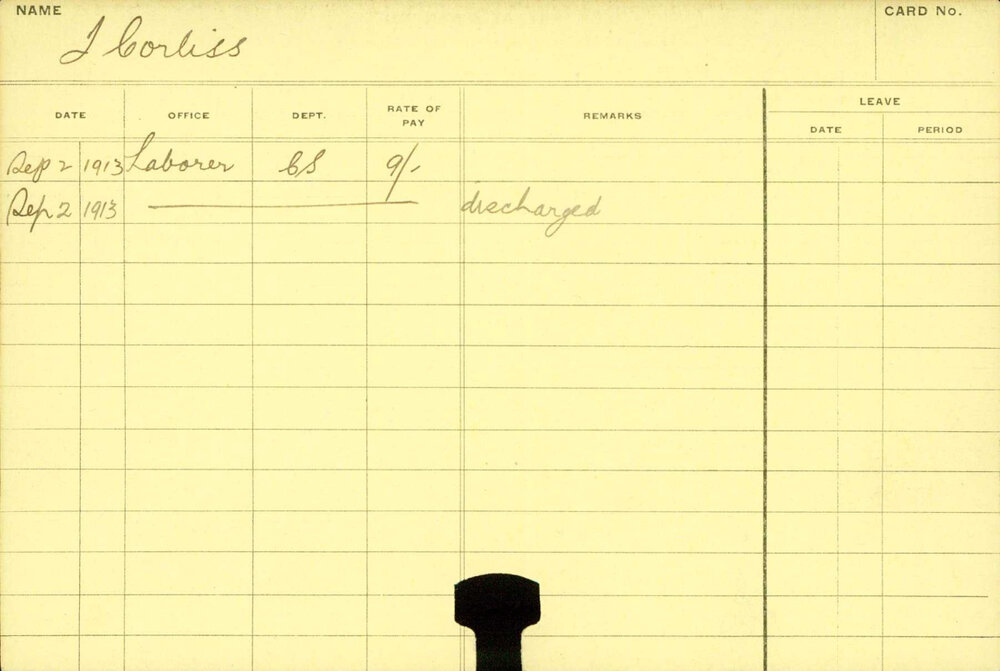 NAME
J Corliss
CARD No.
DATE OFFICE DEPT. RATE OF PAY REMARKS LEAVE
DATE PERIOD
Sep 2 1913 Laborer CS 9/-
Sep 2 1913 discharged